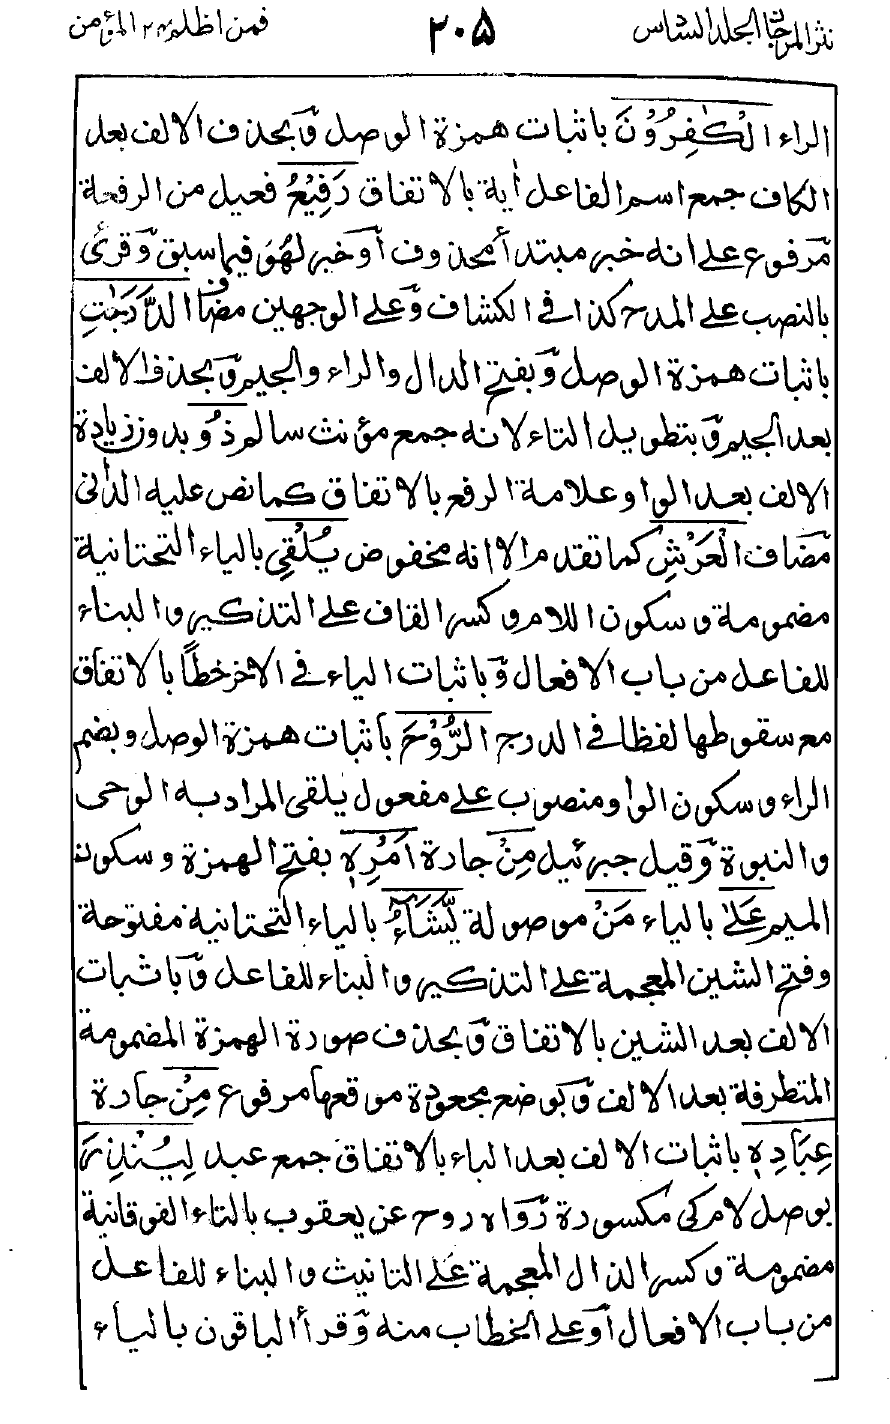 نثر المرجان الجلد السادس ٢٠٥ فمن اظلم ٢٤ المؤمن
الراء الْكٰفِرُوْنَ باثبات همزة الوصل وَبحذف الالف بعد
الكاف جمع اسم الفاعل أية بالاتفاق رَفِيْعُ فعيل من الرفعة
مرفوع على انه خبر مبتدأ محذوف أوخبر لهُوَ فيما سبق وَقرئ
بالنصب على المدح كذا فى الكشاف وَعلى الوجهين مضاف الدَّرَجٰتِ
باثبات همزة الوصل وَبفتح الدال والراء والجيم وَبحذف الالف
بعد الجيم وَبتطويل التاء لانه جمع مؤنث سالم ذُوْ بدون زيادة
الالف بعد الواو علامة الرفع بالاتفاق كما نص عليه الدانى
مضاف الْعَرْشِ كما تقدم الا انه مخفوض يُلْقِى بالياء التحتانية
مضمومة وسكون اللام وكسر القاف على التذكير والبناء
للفاعل من باب الافعال وَباثبات الياء فى الاخر خطاً بالاتفاق
مع سقوطها لفظا فى الدرج الرُّوْحَ باثبات همزة الوصل وبضم
الراء وسكون الواو منصوب على مفعول يلقى المراد به الوحى
والنبوة وَقيل جبرئيل مِنْ جارة اَمْرِهٖ بفتح الهمزة وسكون
الميم عَلٰى بالياء مَنْ موصولة يَّشَآءُ بالياء التحتانية مفتوحة
وفتح الشين المعجمة على التذكير والبناء للفاعل وَباثبات
الالف بعد الشين بالاتفاق وَبحذف صورة الهمزة المضمومة
المتطرفة بعد الالف وَبوضع مجعودة موقعها مرفوع مِنْ جارة
عِبَادِهٖ باثبات الالف بعد الباء بالاتفاق جمع عبد لِيُنْذِرَ
بوصل لام كى مكسورة رَواه روح عن يعقوب بالتاء الفوقانية
مضمومة وكسر الذال المعجمة على التانيث والبناء للفاعل
من باب الافعال أوَعلى الخطاب منه وَقرأ الباقون بالياء